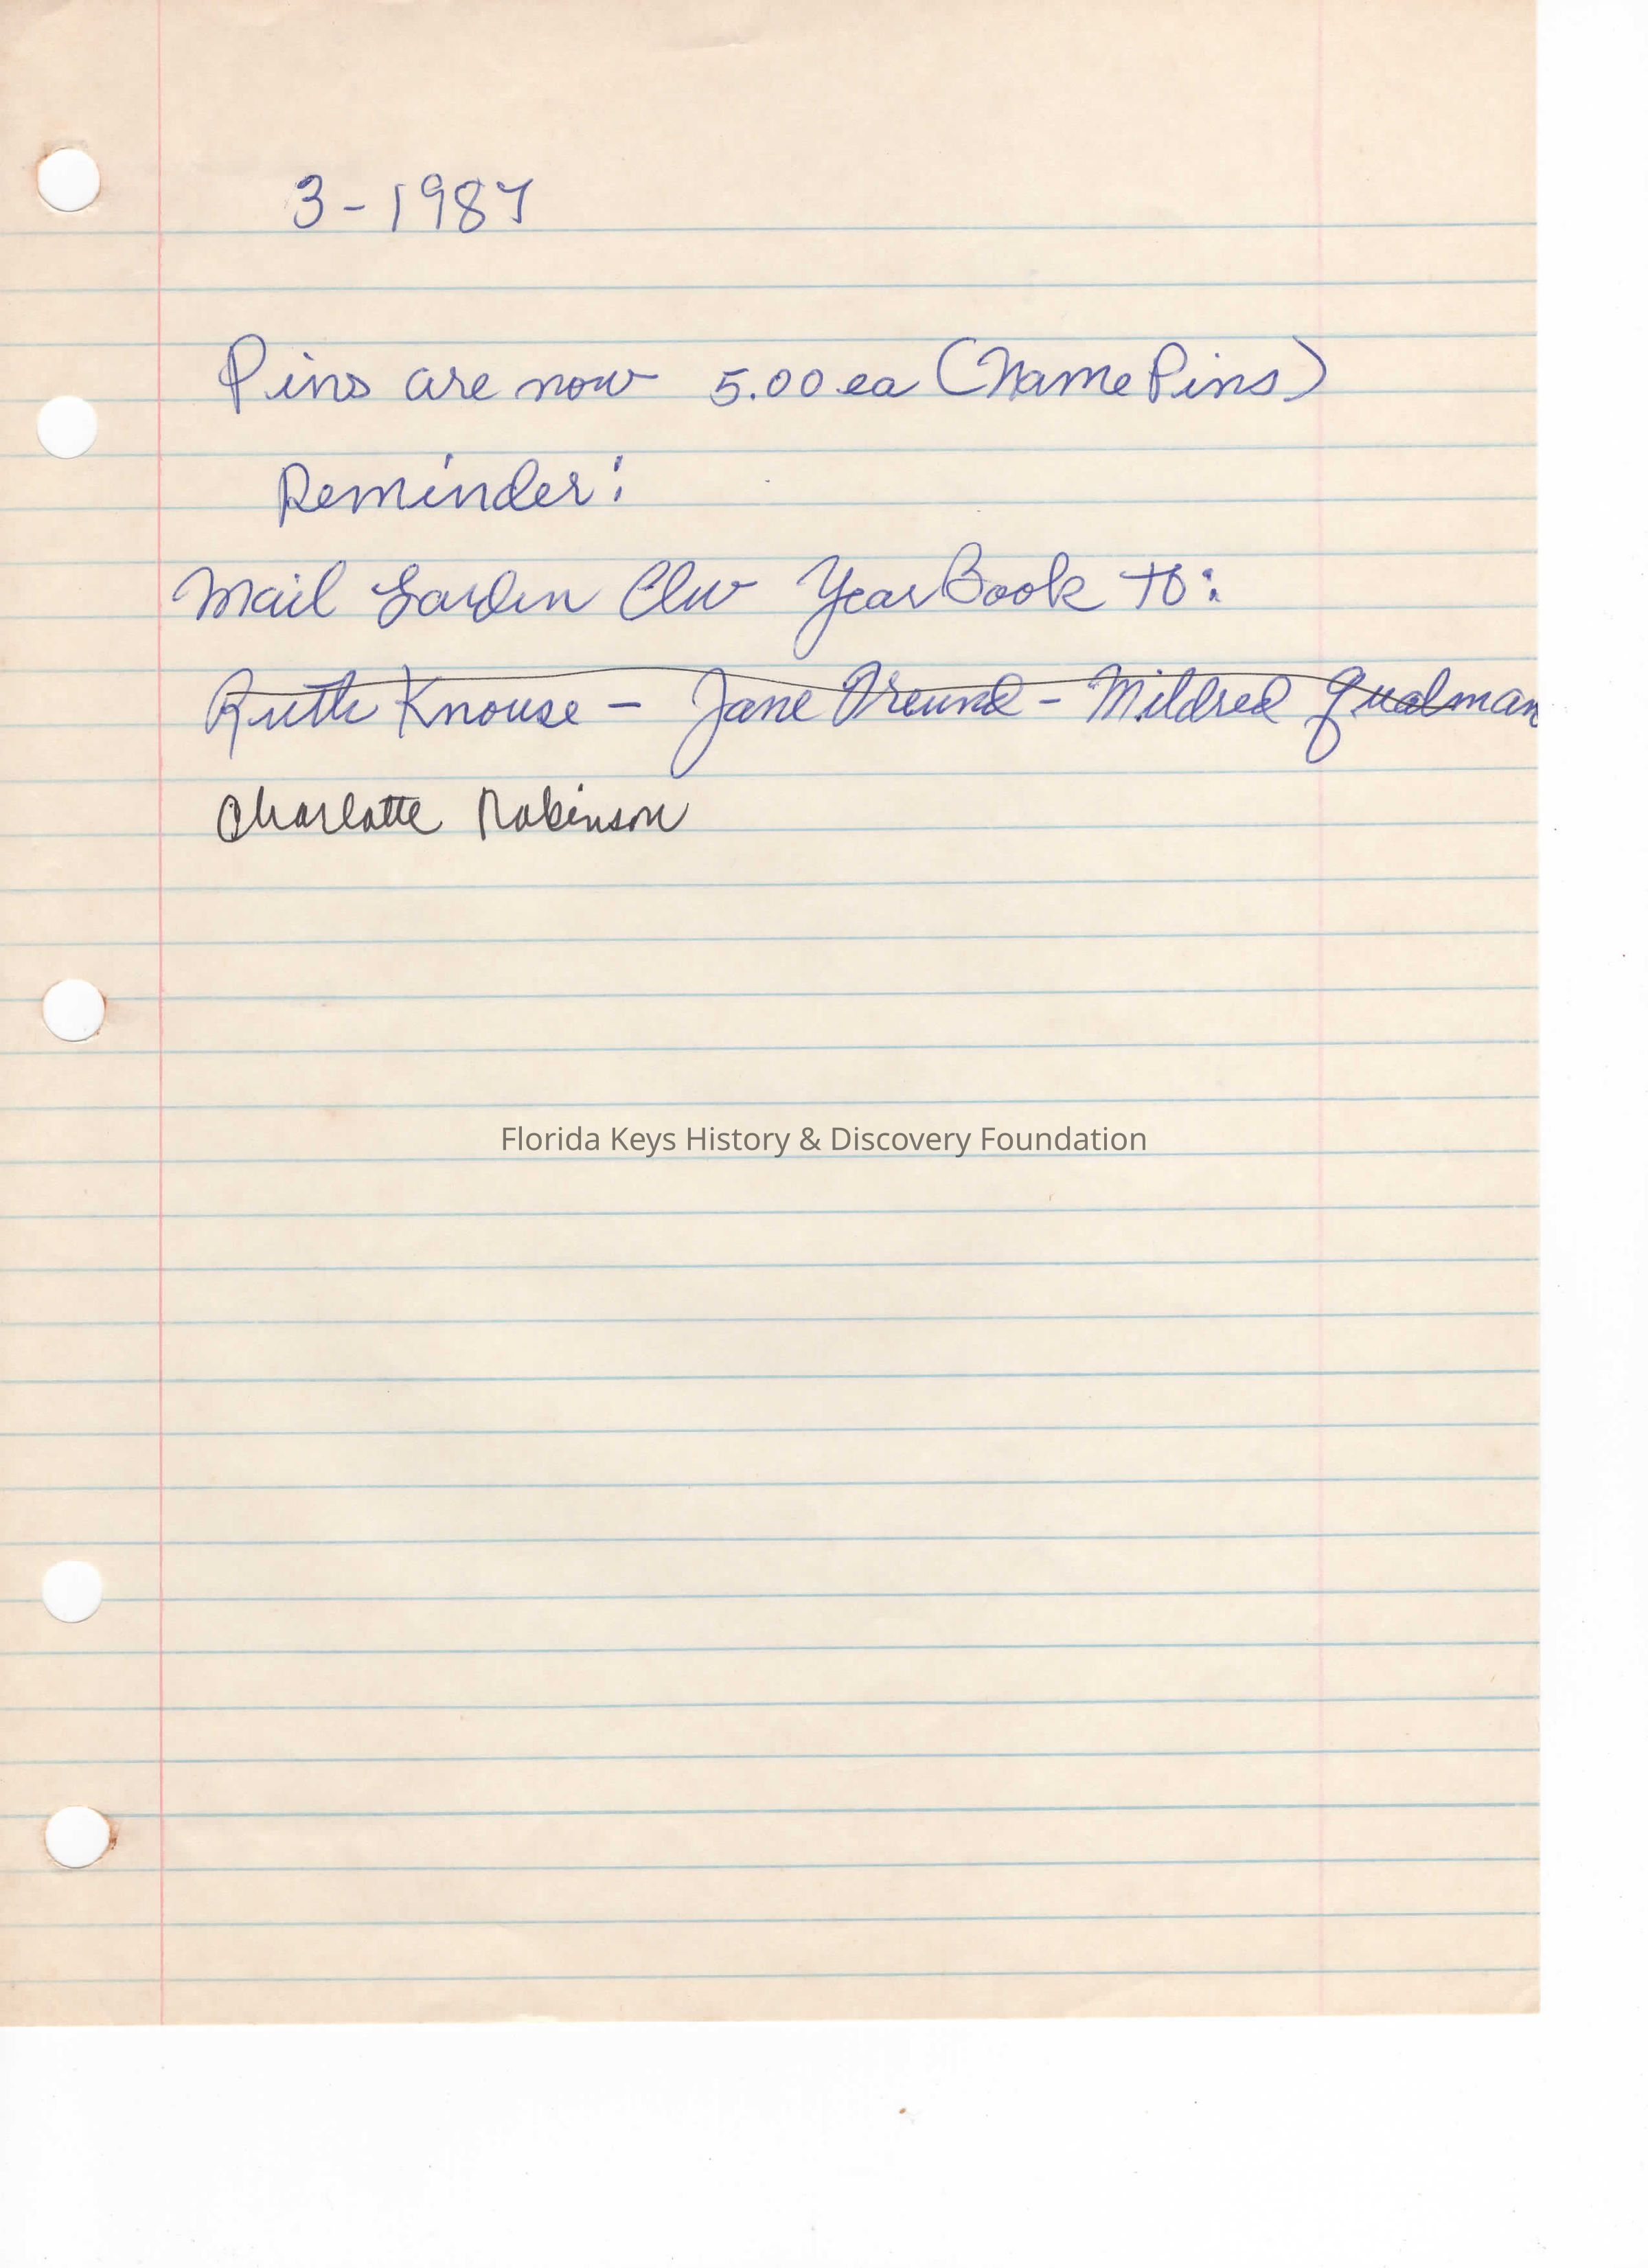 3-1987
Pins are now 5.00 ea (Name Pins)
Reminder:
Mail Garden Clu YearBook to:
Ruth Knouse - Jane Freund - Mildred Qualman
Charlotte Robinson
Florida Keys History & Discovery Foundation